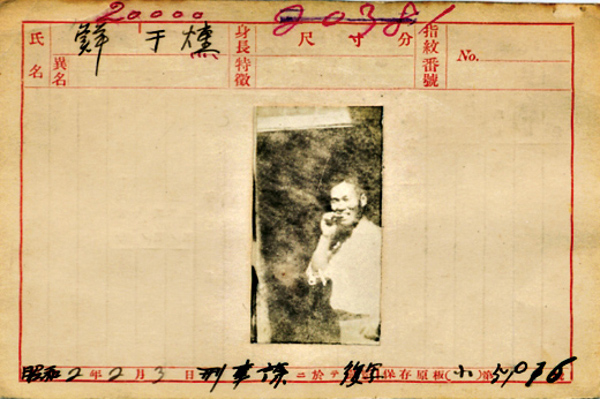 20000
氏名 鮮于燻 異名
身長 尺 寸 分
特徵
指紋番號 No.
昭和2年2月3日刑事課ニ於テ複写保存原板(小)第